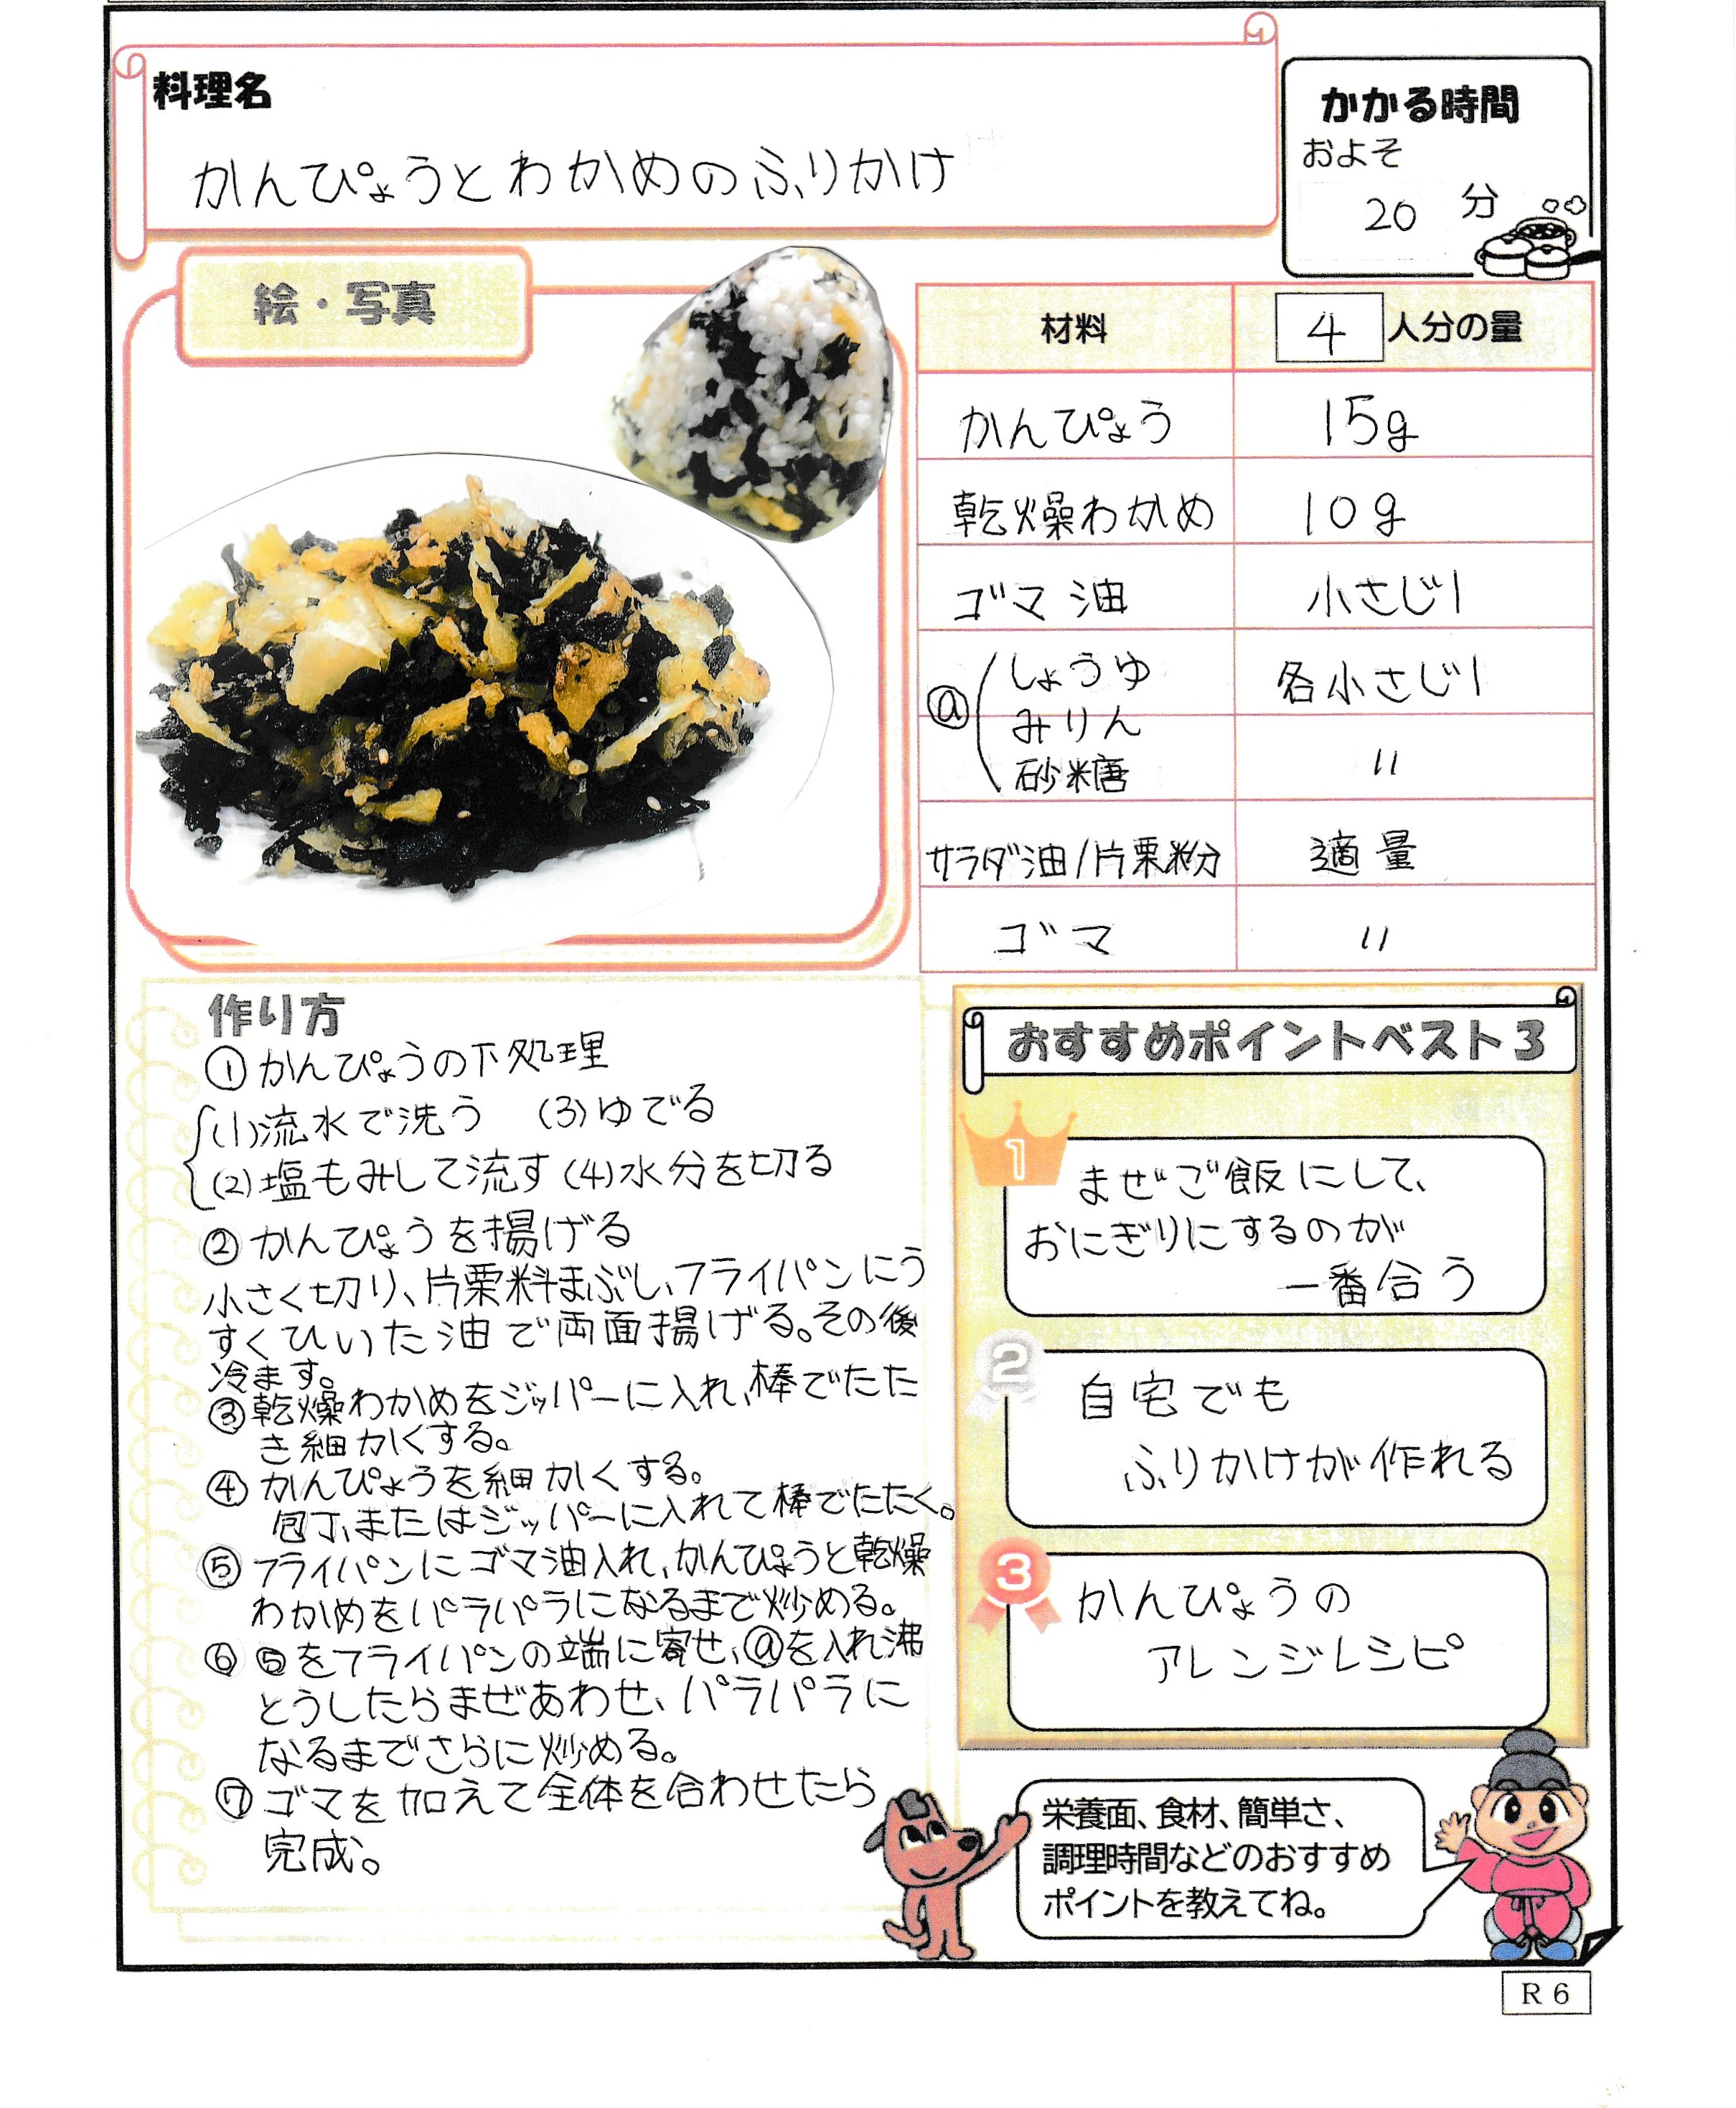 料理名
かんぴょうとわかめのふりかけ
かかる時間
およそ
20 分
絵・写真
材料 4 人分の量
かんぴょう 15g
乾燥わかめ 10g
ゴマ油 小さじ1
ⓐ しょうゆ 各小さじ1
みりん
砂糖 〃
サラダ油/片栗粉 適量
ゴマ 〃
作り方
①かんぴょうの下処理
(1)流水で洗う (3)ゆでる
(2)塩もみして流す (4)水分を切る
②かんぴょうを揚げる
小さく切り、片栗粉まぶし、フライパンにう
すくひいた油で両面揚げる。その後
冷ます。
③乾燥わかめをジッパーに入れ、棒でたた
き細かくする。
④かんぴょうを細かくする。
包丁、またはジッパーに入れて棒でたたく。
⑤フライパンにゴマ油入れ、かんぴょうと乾燥
わかめをパラパラになるまで炒める。
⑥⑤をフライパンの端に寄せ、ⓐを入れ沸
とうしたらまぜあわせ、パラパラに
なるまでさらに炒める。
⑦ゴマを加えて全体を合わせたら
完成。
おすすめポイントベスト3
1
まぜご飯にして、
おにぎりにするのが
一番合う
2
自宅でも
ふりかけが作れる
3
かんぴょうの
アレンジレシピ
栄養面、食材、簡単さ、
調理時間などのおすすめ
ポイントを教えてね。
R6